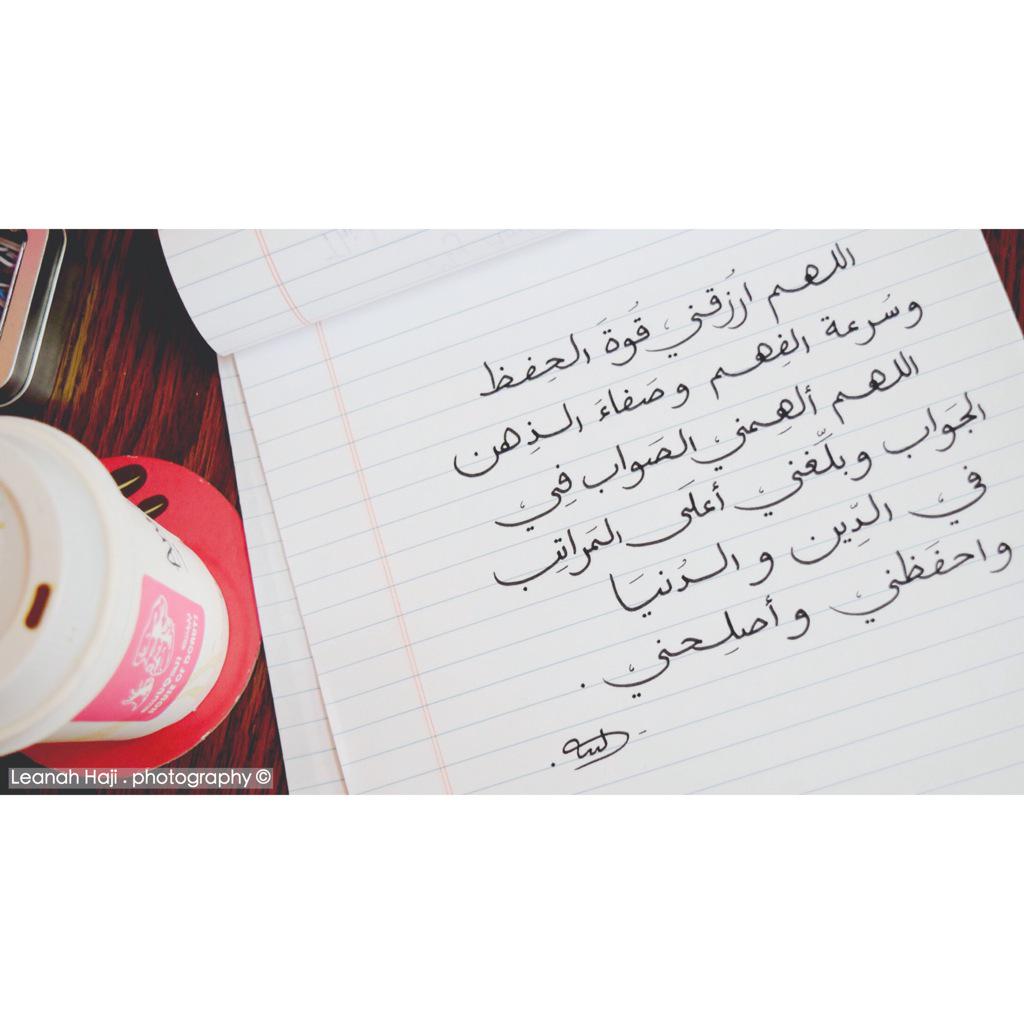 اللهم ارزُقني قُوةَ الحِفظ
وسُرعة الفِهم وصَفاءَ الذِهن
اللهم ألهِمني الصَواب فِي
الجَواب وبلّغني أعلى المَراتِب
في الدِّين والدُنيَا
واحفَظني وأصلِحني.
HOUSE OF DONUTS
Leanah Haji . photography ©